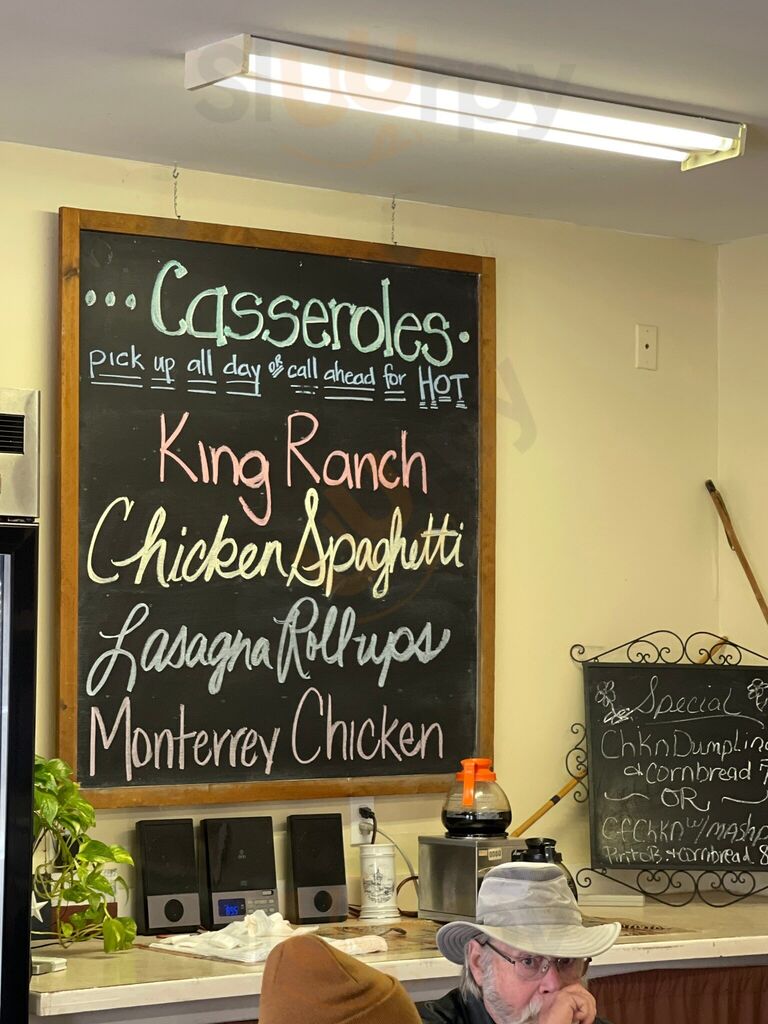 sluurpy
...Casseroles.
pick up all day or call ahead for HOT
King Ranch
Chicken Spaghetti
Lasagna Rollups
Monterrey Chicken
Special
ChknDumplin
& Cornbread
OR
CFChkn w/ mash
PintoB. & Cornbread 8